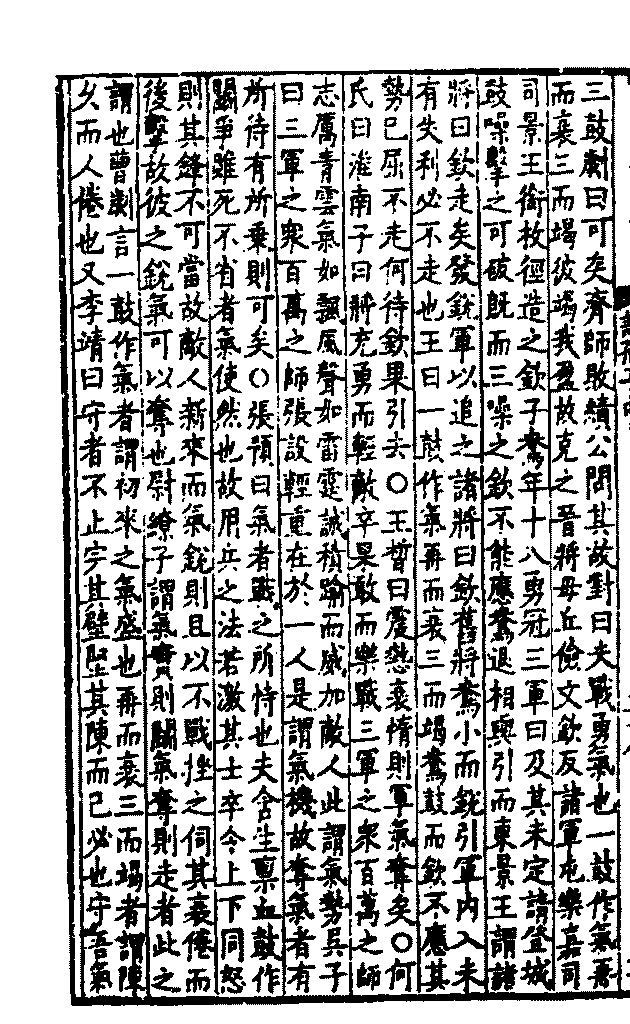 三鼓劌曰可矣齊師敗績公問其故對曰夫戰勇氣也一鼓作氣再
而衰三而竭彼竭我盈故克之晉將毋丘儉文欽反諸軍屯樂嘉司
司景王銜枚徑造之欽子鴦年十八勇冠三軍曰及其未定請登城
鼓噪擊之可破旣而三噪之欽不能應鴦退相與引而東景王謂諸
將曰欽走矣發銳軍以追之諸將曰欽舊將鴦小而銳引軍內入未
有失利必不走也王曰一鼓作氣再而衰三而竭鴦鼓而欽不應其
勢已屈不走何待欽果引去○王晳曰震慹衰惰則軍氣奪矣○何
氏曰淮南子曰將充勇而輕敵卒果敢而樂戰三軍之衆百萬之師
志厲青雲氣如飄風聲如雷霆誠積踰而威加敵人此謂氣勢吳子
曰三軍之衆百萬之師張設輕重在於一人是謂氣機故奪氣者有
所待有所乗則可矣○張預曰氣者戰之所恃也夫含生稟血鼓作
鬬爭雖死不省者氣使然也故用兵之法若激其士卒令上下同怒
則其鋒不可當故敵人新來而氣銳則且以不戰挫之伺其衰倦而
後擊故彼之銳氣可以奪也尉繚子謂氣實則鬬氣奪則走者此之
謂也曹劌言一鼓作氣者謂初來之氣盛也再而衰三而竭者謂陳
久而人倦也又李靖曰守者不止字其壁堅其陳而已必也守吾氣